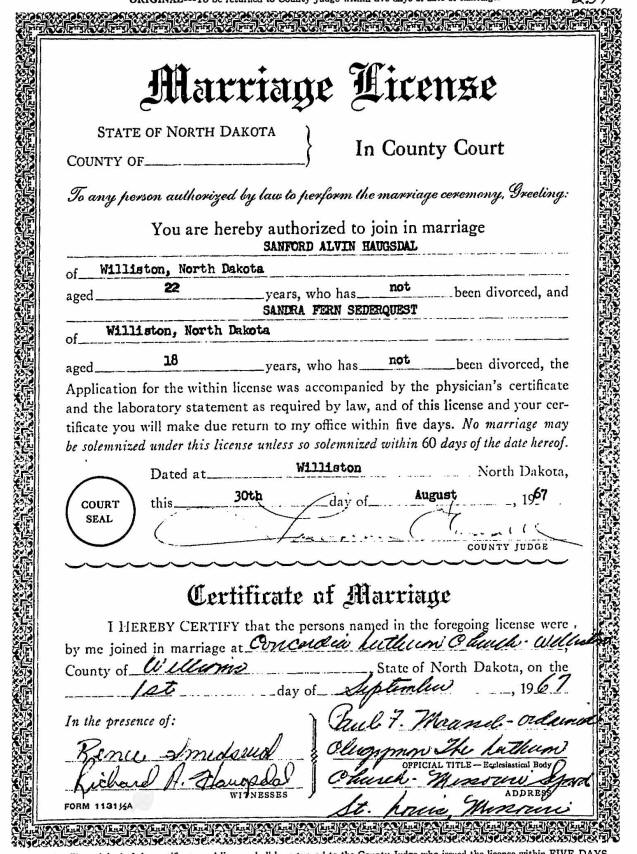 Marriage License
STATE OF NORTH DAKOTA
COUNTY OF
In County Court
To any person authorized by law to perform the marriage ceremony, Greeting:
You are hereby authorized to join in marriage
SANFORD ALVIN HAUGSDAL
of Williston, North Dakota
aged 22 years, who has not been divorced, and
SANDRA FERN SEDERQUEST
of Williston, North Dakota
aged 18 years, who has not been divorced, the
Application for the within license was accompanied by the physician's certificate
and the laboratory statement as required by law, and of this license and your cer-
tificate you will make due return to my office within five days. No marriage may
be solemnized under this license unless so solemnized within 60 days of the date hereof.
Dated at Williston North Dakota,
this 30th day of August, 1967
COURT
SEAL
COUNTY JUDGE
Certificate of Marriage
I HEREBY CERTIFY that the persons named in the foregoing license were
by me joined in marriage at Concordia Lutheran Church - Williston
County of Williams, State of North Dakota, on the
1st day of September, 1967
In the presence of:
Richard A. Haugsdal
WITNESSES
FORM 1131½A
Paul F. - ordained
Clergyman The Lutheran
OFFICIAL TITLE — Ecclesiastical Body
Church - Missouri Synod
ADDRESS
St. Louis, Missouri